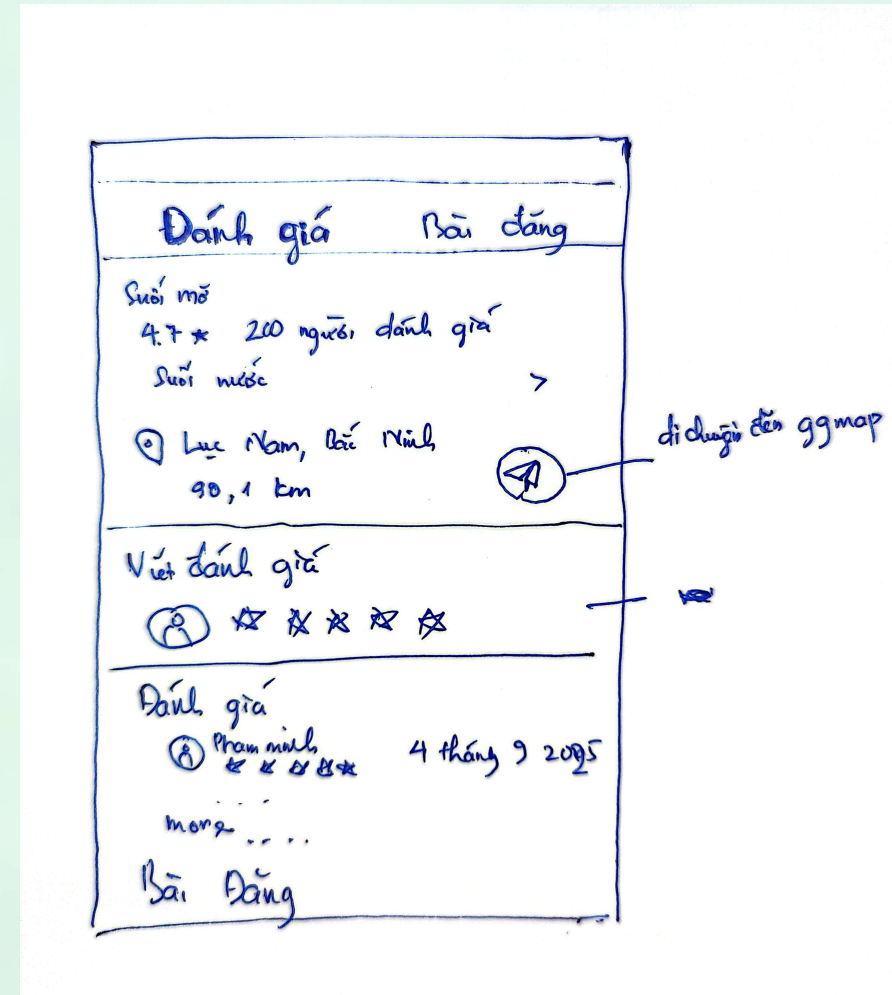 Đánh giá Bài đăng
Suối mỡ
4.7 ★ 200 người đánh giá
Suối nước >
Lục Nam, Bắc Ninh
90,1 km
di chuyển đến ggmap
Viết đánh giá
Đánh giá
Phạm minh 4 tháng 9 2025
more .....
Bài Đăng